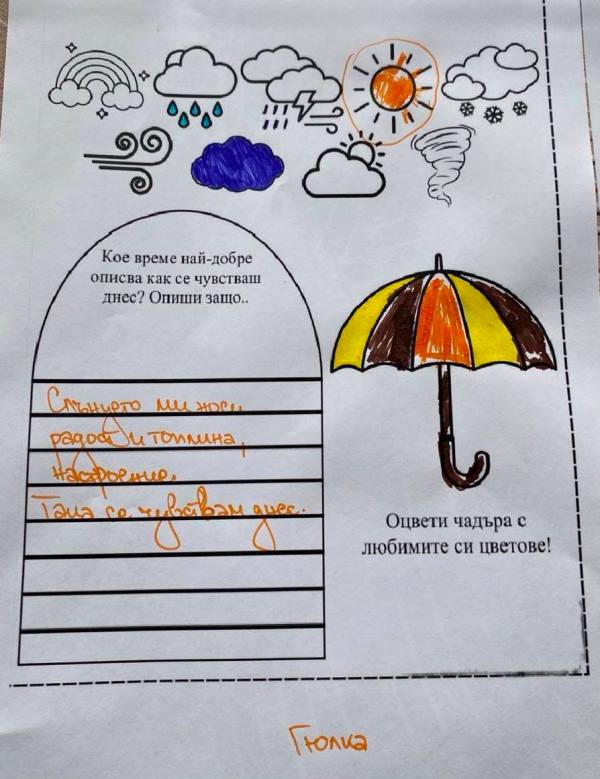 Кое време най-добре
описва как се чувстваш
днес? Опиши защо..
Слънцето ми носи
радост и топлина,
настроение.
Така се чувствам днес.
Оцвети чадъра с
любимите си цветове!
Гюлка